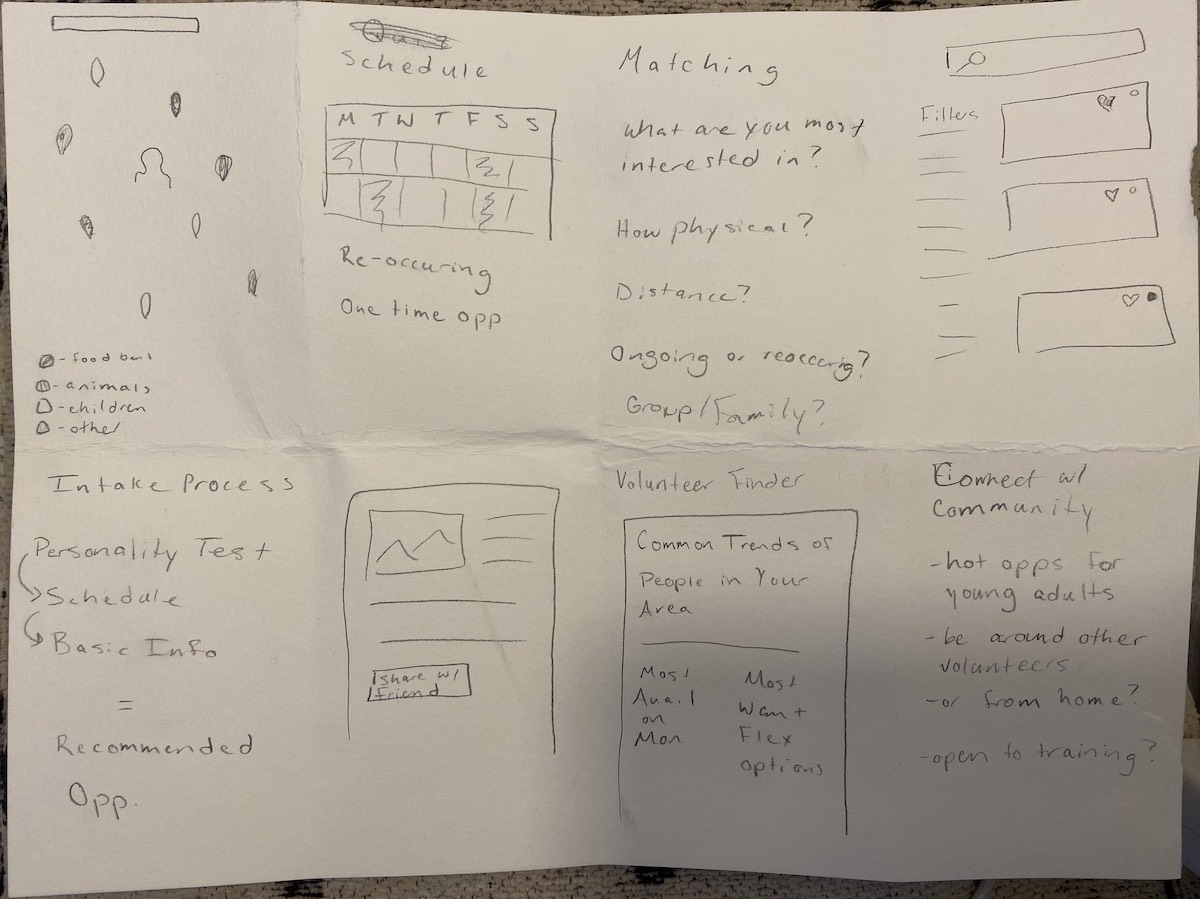 - food bank
- animals
- children
- other
Schedule
M T W T F S S
Re-occuring
One time opp
Matching
what are you most
interested in?
How physical?
Distance?
Ongoing or reoccering?
Group/Family?
Filters
Intake Process
Personality Test
Schedule
Basic Info
=
Recommended
Opp.
Share w/
friend
Volunteer Finder
Common Trends of
People in Your
Area
Most
Avail
on
Mon
Most
Want
Flex
options
Connect w/
Community
- hot opps for
young adults
- be around other
volunteers
- or from home?
- open to training?